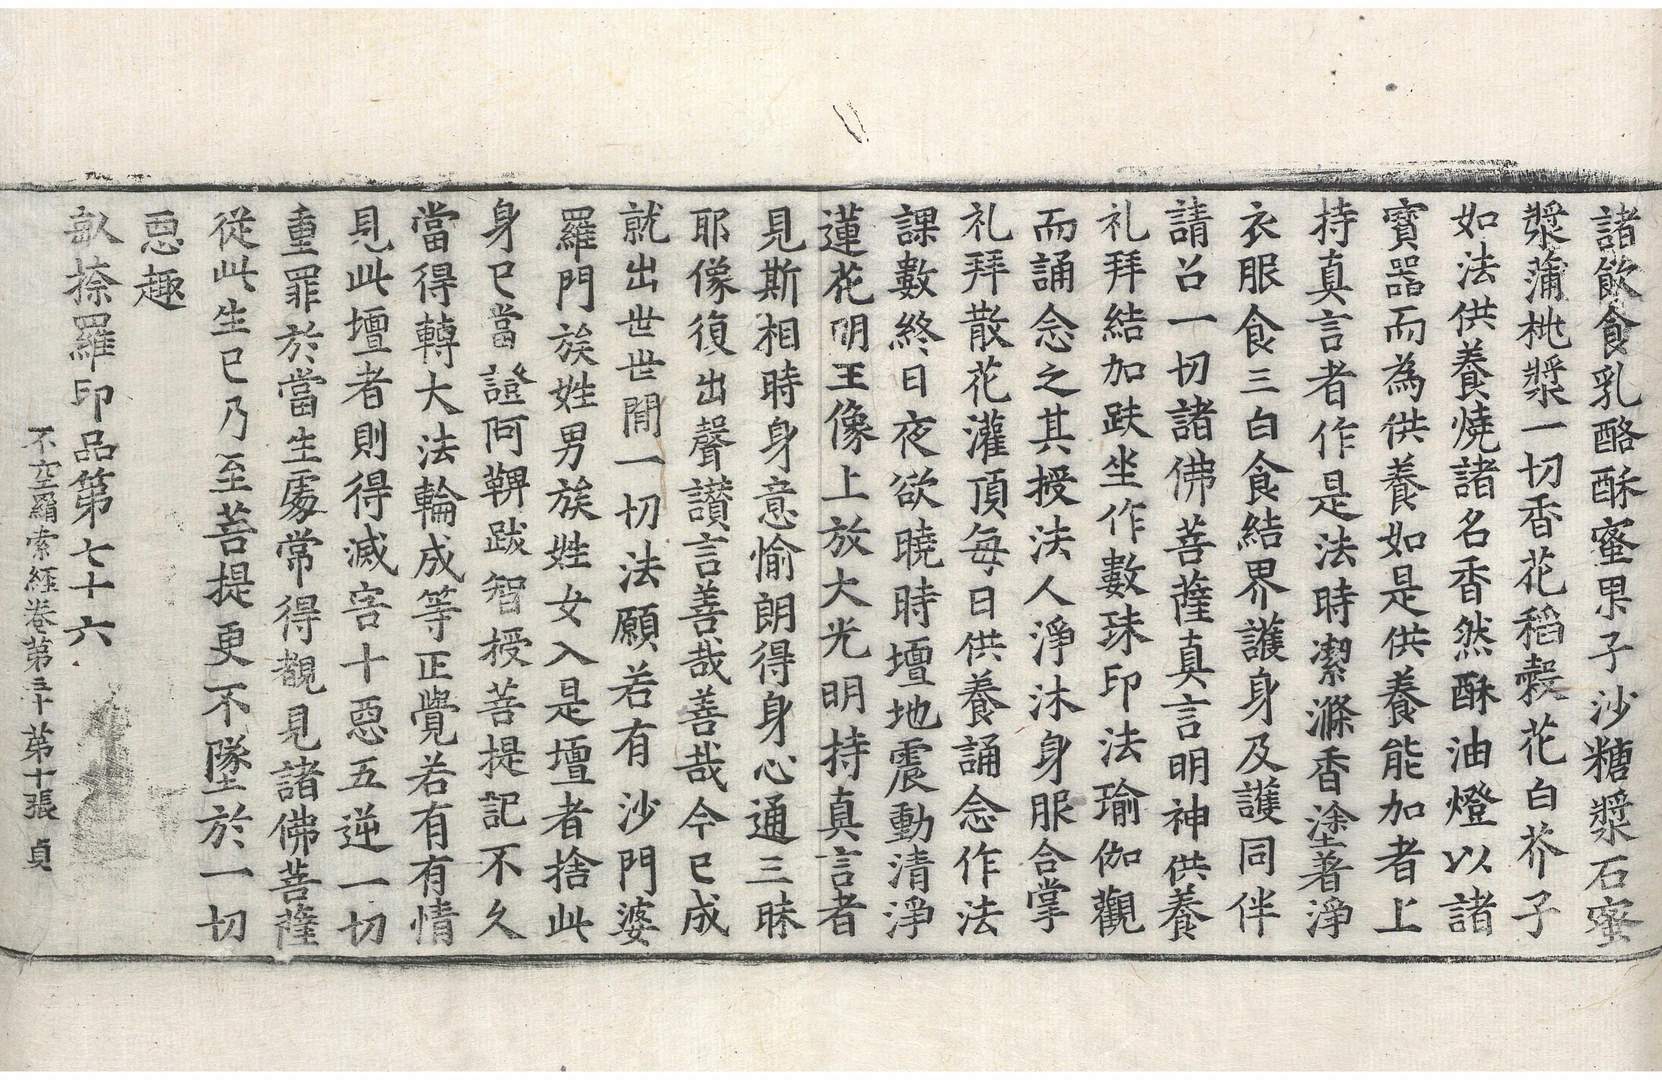 諸飲食乳酪酥蜜果子沙糖漿石蜜
漿蒲桃漿一切香花稻穀花白芥子
如法供養燒諸名香然酥油燈以諸
寶器而為供養如是供養能加者上
持真言者作是法時潔滌香塗著淨
衣服食三白食結界護身及護同伴
請召一切諸佛菩薩真言明神供養
礼拜結加趺坐作數珠印法瑜伽觀
而誦念之其授法人淨沐身服合掌
礼拜散花灌頂每日供養誦念作法
課數終日夜欲曉時壇地震動清淨
蓮花明王像上放大光明持真言者
見斯相時身意愉朗得身心通三昧
耶像復出聲讃言善哉善哉今已成
就出世世間一切法願若有沙門婆
羅門族姓男族姓女入是壇者捨此
身已當證阿鞞跋智授菩提記不久
當得轉大法輪成等正覺若有有情
見此壇者則得滅害十惡五逆一切
重罪於當生處常得覩見諸佛菩薩
從此生已乃至菩提更不墜於一切
惡趣
㪽捺羅印品第七十六
不空羂索經卷第三十 第十張 貞